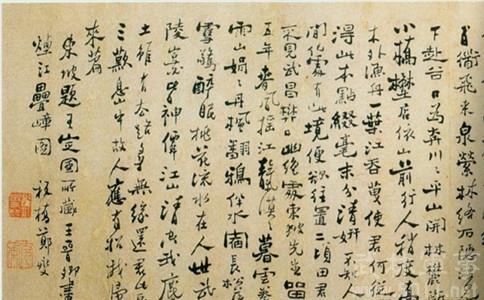 百道飛來泉縈林絡石隱復見
下赴谷口為奔川々平山開林麓斷
小橋野店依山前行人稍度喬
木外漁舟一葉江吞天使君何從
得此本點綴毫末分清妍不知人
間何處有此境便欲往置二頃田君
不見武昌樊口幽絕處東坡先生留
五年春風搖江天漠々暮雲卷
雨山娟々丹楓翻鴉伴水宿長松落
雪驚醉眠桃花流水在人世武
陵豈皆神僊江山清空我塵
土雖有去路尋無緣還君此畫
三歎息山中故人應有招我歸
來篇
東坡題王定國所藏王晉卿畫
煙江疊嶂圖 板橋鄭燮